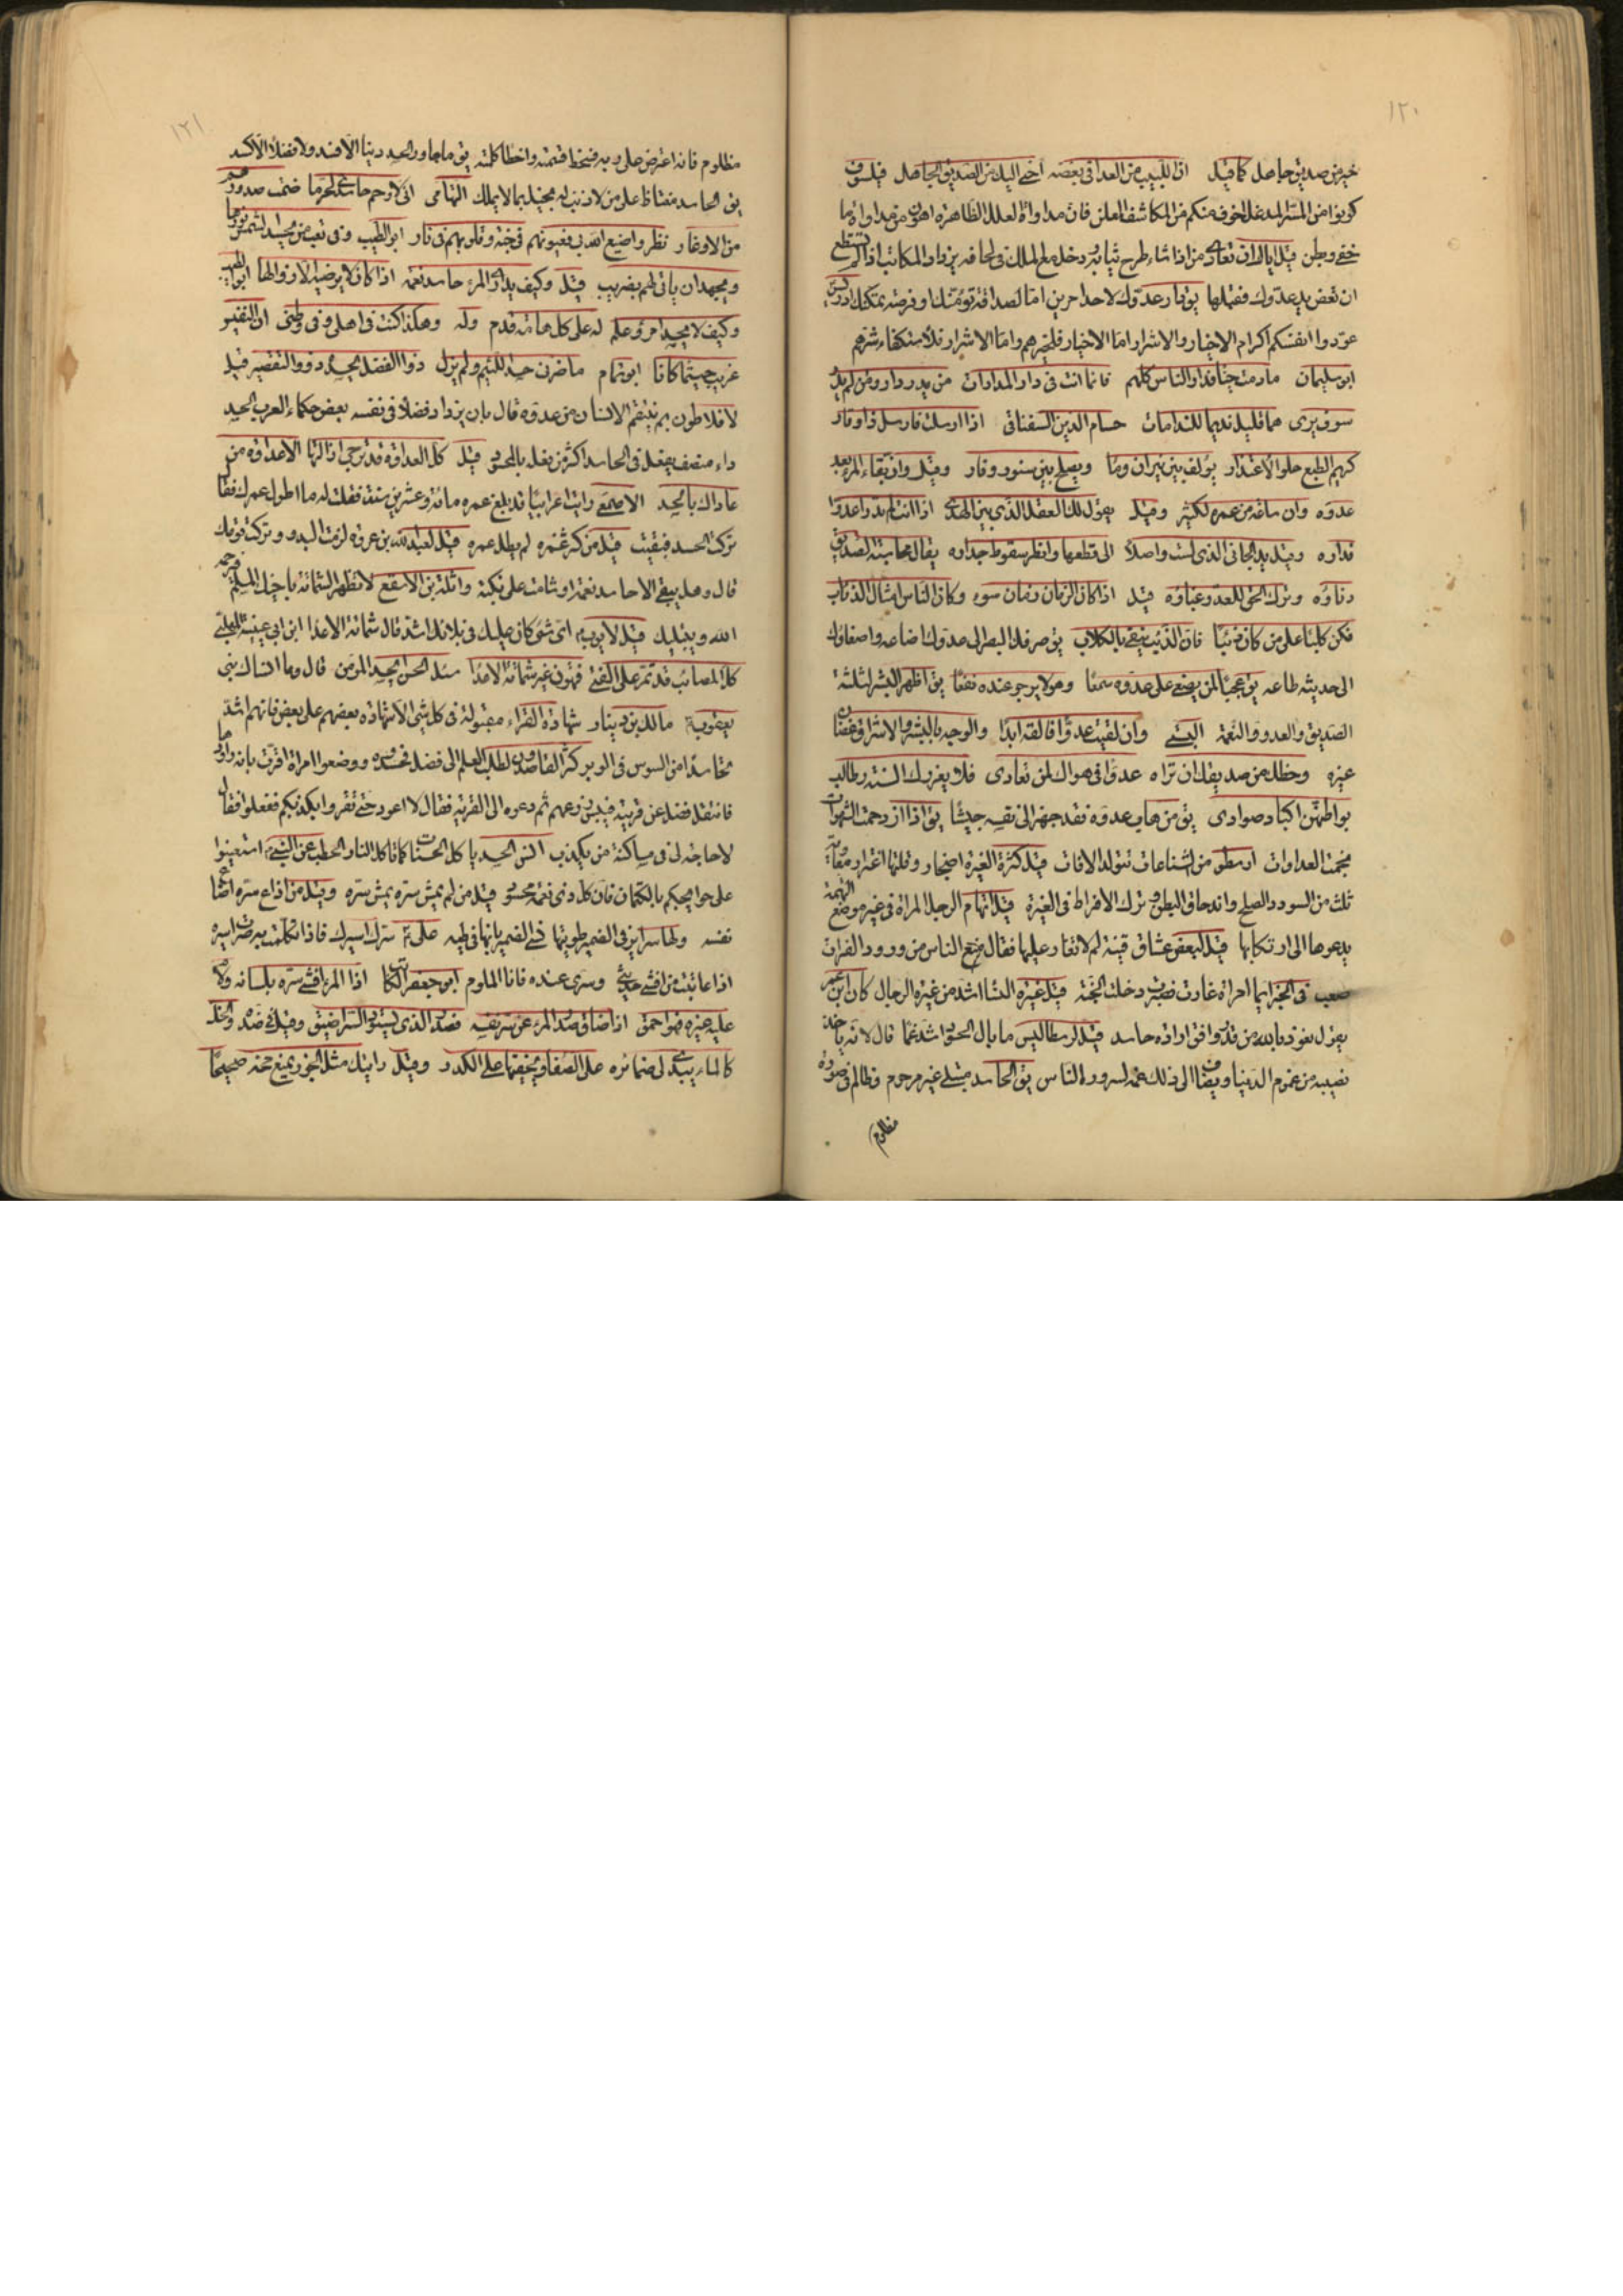 ١٢٠
خير من صديق جاهل كما قيل ان اللبيب من العدا في بغضه احنى اليك من الصديق الجاهل فيلسوف
كونوا من المسر المدغل اخوف منكم من المكاشف المعلن فان مداواة العلل الظاهرة اهون من مداواة ما
خفي وبطن قيل اياك ان تعادي من اذا شاء طرح ثيابه ودخل مع الملك في لحافه يزداد المكاتب اذا لم تستطع
ان تعض يد عدوك فقبلها يق دار عدوك لاحد امرين اما لصداقة تؤمنك او فرصة تمكنك
عودوا انفسكم اكرام الاخيار والاشرار اما الاخيار فلخيرهم واما الاشرار فلاستكفاء شرهم
ابو سليمان مادمت حيا فدار الناس كلهم فانما انت في دار المدارات من يدر دارى ومن لم يدر
سوف يرى عما قليل نديما للندامات حسام الدين السفناقي اذا ارسلت فارسل ذا وقار
كريم الطبع حلو الاعتذار يؤلف بين نيران وما ويصلح بين سنور وفار وقيل وان بقاء المرء بعد
عدوه وان ساعة من عمره لكثير وقيل يقول لك العقل الذي بين الهدى اذا انت لم تدرا عدوا
فداره وقبل يد الجاني الذي لست واصلا الى قطعها وانظر سقوط جداره يقال محاسبة الصديق
دناوه وترك الحق للعدو غباوة قيل اذا كان الزمان زمان سوء وكان الناس امثال الذئاب
فكن كلبا على من كان ذئبا فان الذئب يتقى بالكلاب يق صرفك البصر الى عدوك اضاعه واصغائك
الى حديثه طاعه يق عجبا لمن يصغي على عدوه سمعا وهو لا يرجو عنده نفعا يق اظهر البشر لثلثة
الصديق والعدو والنعمة البستي وان لقيت عدوا فالقه ابدا والوجه بالبشر والاشراق غضا
غيره وحظك من صديقك ان تراه عدوا في هواك لمن تعادي فلا يغررك السنة رطاب
بواطنهن اكباد صوادى يق من هاب عدوه فقد جهز الى نفسه جيشا يق اذا ازدحمت الشهوات
نجمت العداوات ارسطو من اشناعات تتولد الافات قيل كثرة الغيرة اضجار وقلتها اغترار
ثلث من السودد الصلع واندحاق البطن وترك الافراط في الغيرة قيل اتهام الرجل المراة في غير موضع التهمة
يدعوها الى ارتكابها قيل لبعض عشاق قينة لم لا تغار عليها فقال منع الناس من ورود الفرات
صعب في الخبر ايما امراة غارت فصبرت دخلت الجنة قيل غيرة النسا اشد من غيرة الرجال كان ابن عمر
يقول نعوذ بالله من قدر وافق ارادة حاسد قيل لارسطاليس ما بال الحسود اشد غما قال لانه ياخذ
نصيبه من غموم الدنيا ويضاف الى ذلك غمه لسرور الناس يق الحاسد مبتلى غير مرحوم وظالم في صورة
مظلوم
١٢١
مظلوم فانه اعترض على ربه فسخط قسمته واخطا كلمته يق ما جاور الحسد دينا الا افسد ولا فضلا الا اكسد
يق الحاسد مغتاظ على من لا ذنب له بخيل بما لا يملك التهامى انى لارحم حاسدي لحر ما ضمت صدورهم
من الاوغار نظروا صنيع الله بي فعيونهم في جنة وقلوبهم في نار ابو الطيب وفى تعب من يحسد الشمس نورها
ويجهد ان ياتي لهم بضريب قيل وكيف يدارى المرء حاسد نعمة اذا كان لا يرضيه الا زوالها ابو الطيب
وكيف لا يحسد امرؤ علم له على كل هامة قدم وله وهكذا كنت في اهلي وفي وطني ان النفيس
غريب حيثما كانا ابو تمام ما ضرنى حسد اللئيم ولم يزل ذوا الفضل يحسده ذوو التقصير قيل
لافلاطون بم ينتقم الانسان من عدوه قال بان يزداد فضلا في نفسه بعض حكماء العرب الحسد
داء منصف يفعل في الحاسد اكثر من يفعل بالمحسود قيل كل العداوة قد ترجى ازالتها الا عداوة من
عاداك بالحسد الاصمعي رايت اعرابيا قد بلغ عمره مائة وعشرين سنة فقلت له ما اطول عمرك فقال
تركت الحسد فبقيت قيل من كثر غمره لم يطل عمره قيل لعبد الله بن عروة لزمت البدو وتركت قومك
قال وهل بقي الا حاسد نعمة او شامت على نكبة واثلة بن الاسقع لا تظهر الشماتة باخيك المسلم فيرحمه
الله ويبتليك قيل لايوب اى شئ كان عليك في بلائك اشد قال شماتة الاعدا ابن ابي عيينة المهلبي
كل المصائب قد تمر على الفتى فتهون غير شماتة الاعدا سئل الحسن ايحسد المؤمن قال وما انساك بنى
يعقوب مالك بن دينار شهادة القراء مقبولة في كل شئ الا شهادة بعضهم على بعض فانهم اشد
تحاسدا من السوس في الوبر كثر القاصدون لطلب العلم الى فضل فحسدوه ووضعوا امراة اقرت بانه راودها
فانتقل فضل عن قريته فيبس زرعهم ثم دعوه الى القرية فقال لا اعود حتى تقروا بكذبكم ففعلوا فقال
لا حاجة لى في مساكنة من يكذب انس الحسد ياكل الحسنات كما تاكل النار الحطب عن النبي استعينوا
على حوايجكم بالكتمان فان كل ذي نعمة محسود قيل من لم يمش ستره يمش ستره وقيل من اذاع سره اضاع
نفسه ولها سراير في الضمير طويتها نسى الضمير بانها في طيه على سرك اسيرك فاذا تكلمت به صرت اسيره
اذا عاتبت من افشى حديثي وسرى عنده فانا الملوم ابو جعفر الكاتب اذا المرء افشى سره بلسانه ولام
عليه غيره فهو احمق اذا ضاق صدر المرء عن سر نفسه فصدر الذي يستودع السر اضيق وقيل في ضده
كالماء يبدي لى ضمائره على الصفا ويخفيها على الكدر وقيل رايتك مثل الجوز يمنع خيره صحيحا